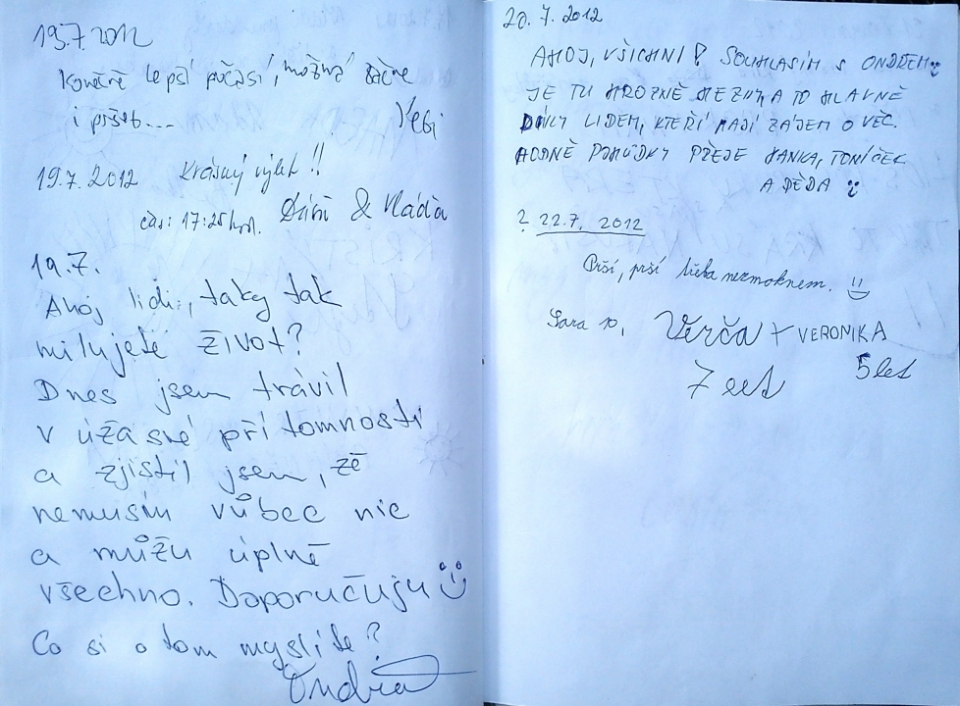 19.7.2012
Konečně lepší počasí, možná začne
i pršet...
19.7.2012 Krásný výlet!!
čas: 17:25 hod. & Vláďa
19.7.
Ahoj lidi, taky tak
milujete život?
Dnes jsem trávil
v úžasné přítomnosti
a zjistil jsem, že
nemusím vůbec nic
a můžu úplně
všechno. Doporučuju
Co si o tom myslíte?
Ondra
20.7.2012
AHOJ, VŠICHNI! SOUHLASÍM S ONDŘEM
JE TU HROZNĚ HEZKY, A TO HLAVNĚ
DÍKY LIDEM, KTEŘÍ MAJÍ ZÁJEM O VĚC.
HODNĚ POHODY PŘEJE HANKA, TONÍČEK
A DĚDA
? 22.7. 2012
Prší, prší nezmoknem.
Sara 10, Verča + VERONIKA
7 let 5 let